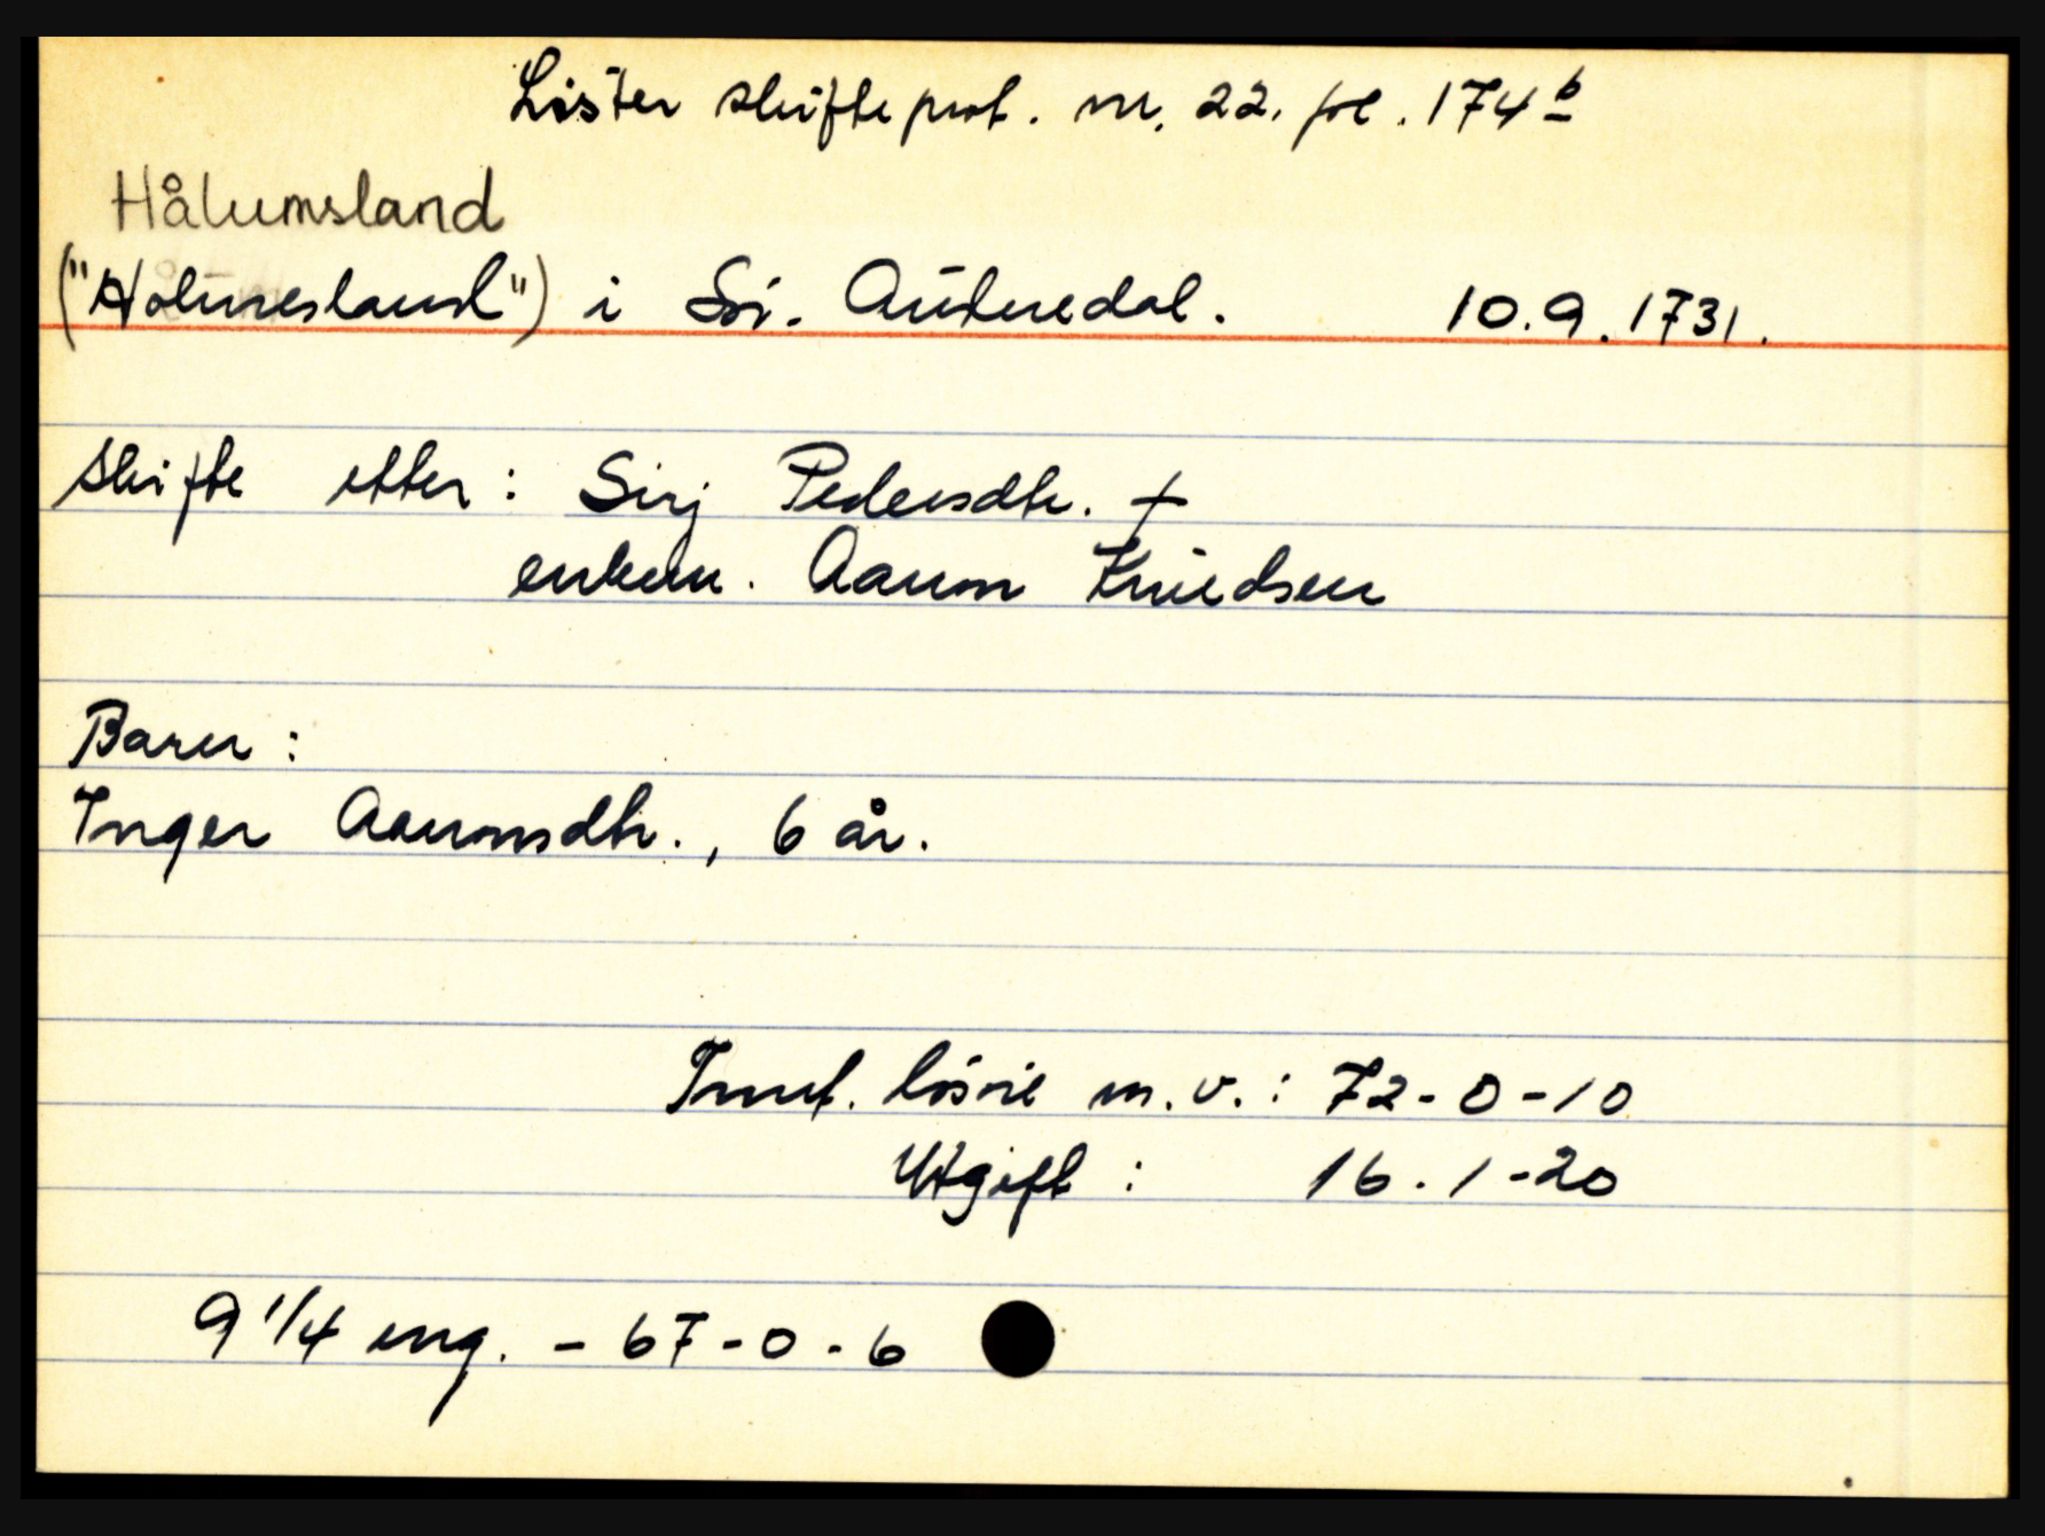 Lister skifteprot. nr. 22. fol. 174 b
Hålumsland
("Holmesland") i Sö. Audnedal. 10.9.1731.
Skifte etter: Sirj Pedersdtr. +
enkem. Aanon Knudsen
Barn:
Inger Aanonsdtr., 6 år.
Innt. lösöre m.v.: 72-0-10
Utgift: 16.1-20
9 1/4 eng. - 67-0-6